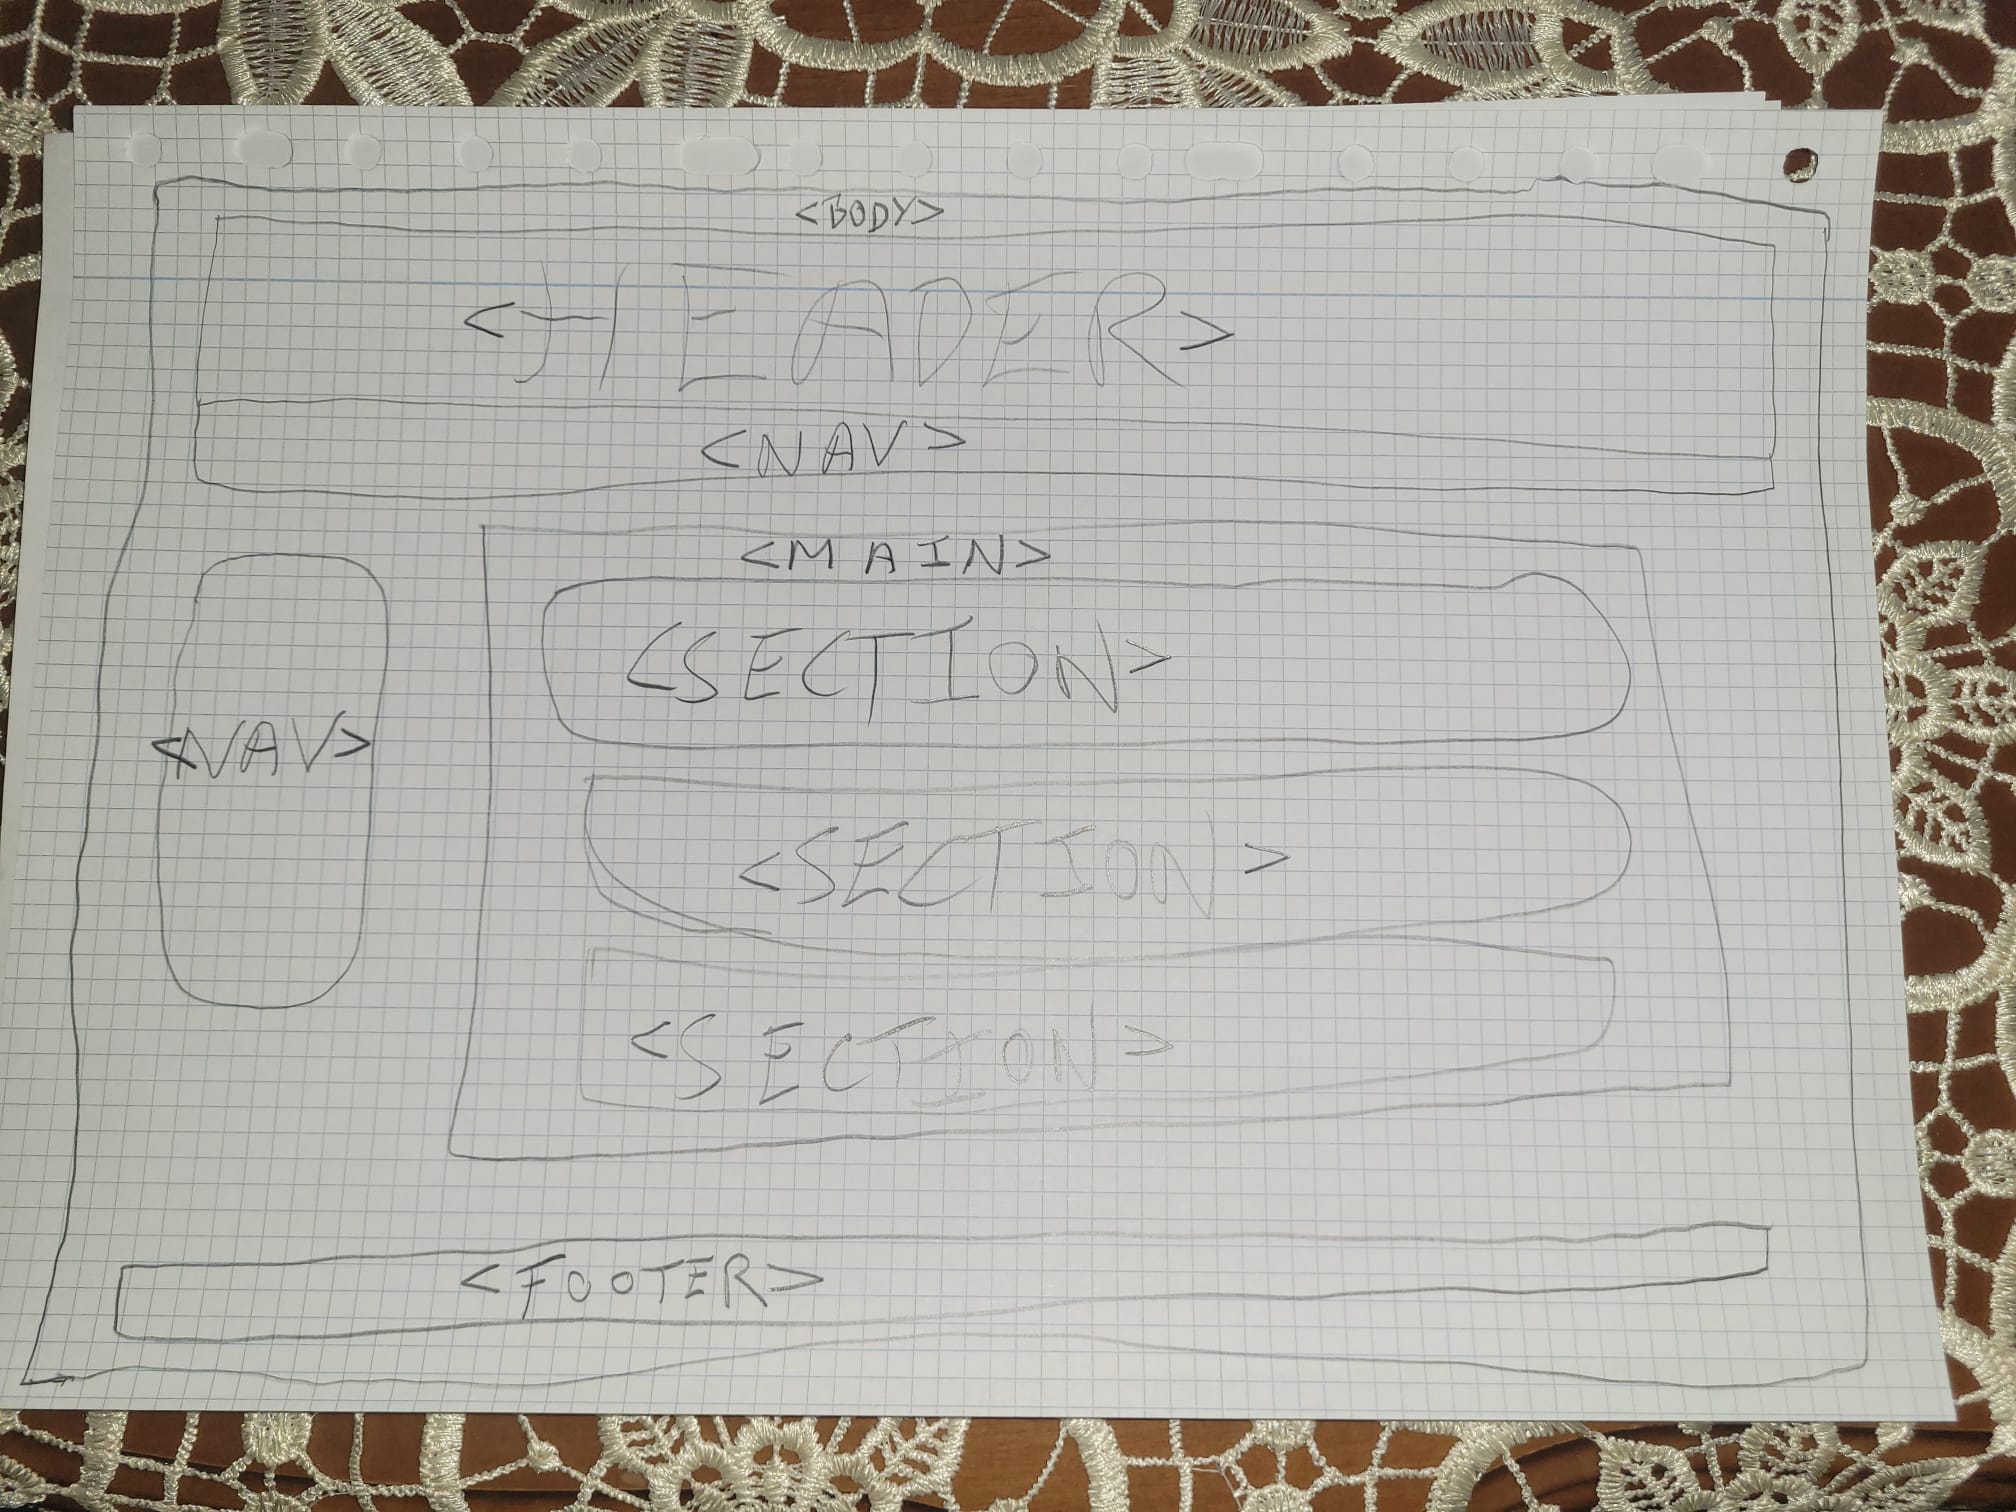 <BODY>
<HEADER>
<NAV>
<MAIN>
<SECTION>
<NAV>
<SECTION>
<SECTION>
<FOOTER>